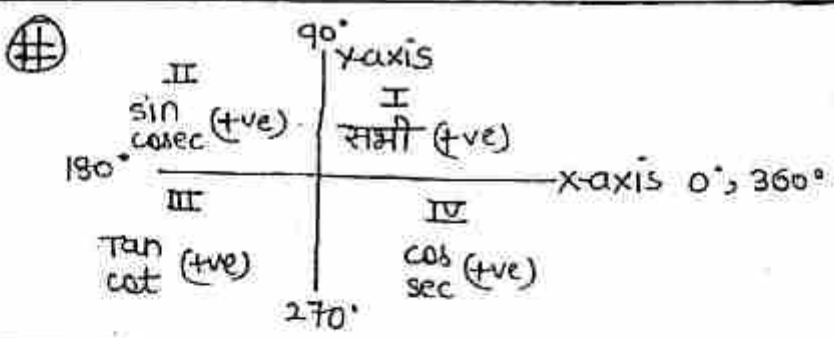 #
90°
y-axis
II
sin
cosec (+ve)
I
सभी (+ve)
180°
x-axis 0°, 360°
III
Tan
cot (+ve)
IV
cos
sec (+ve)
270°